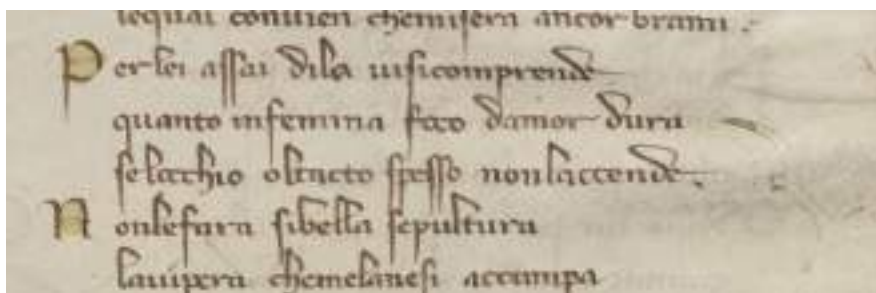 lequai conuien chemisera ancor brami .
Per lei assai dila uisicomprende
quanto infemina foco damor dura
selochio oltacto spesso nonlaccende .
Nonlefara sibella sepultura
lauipera chemelanesi accampa